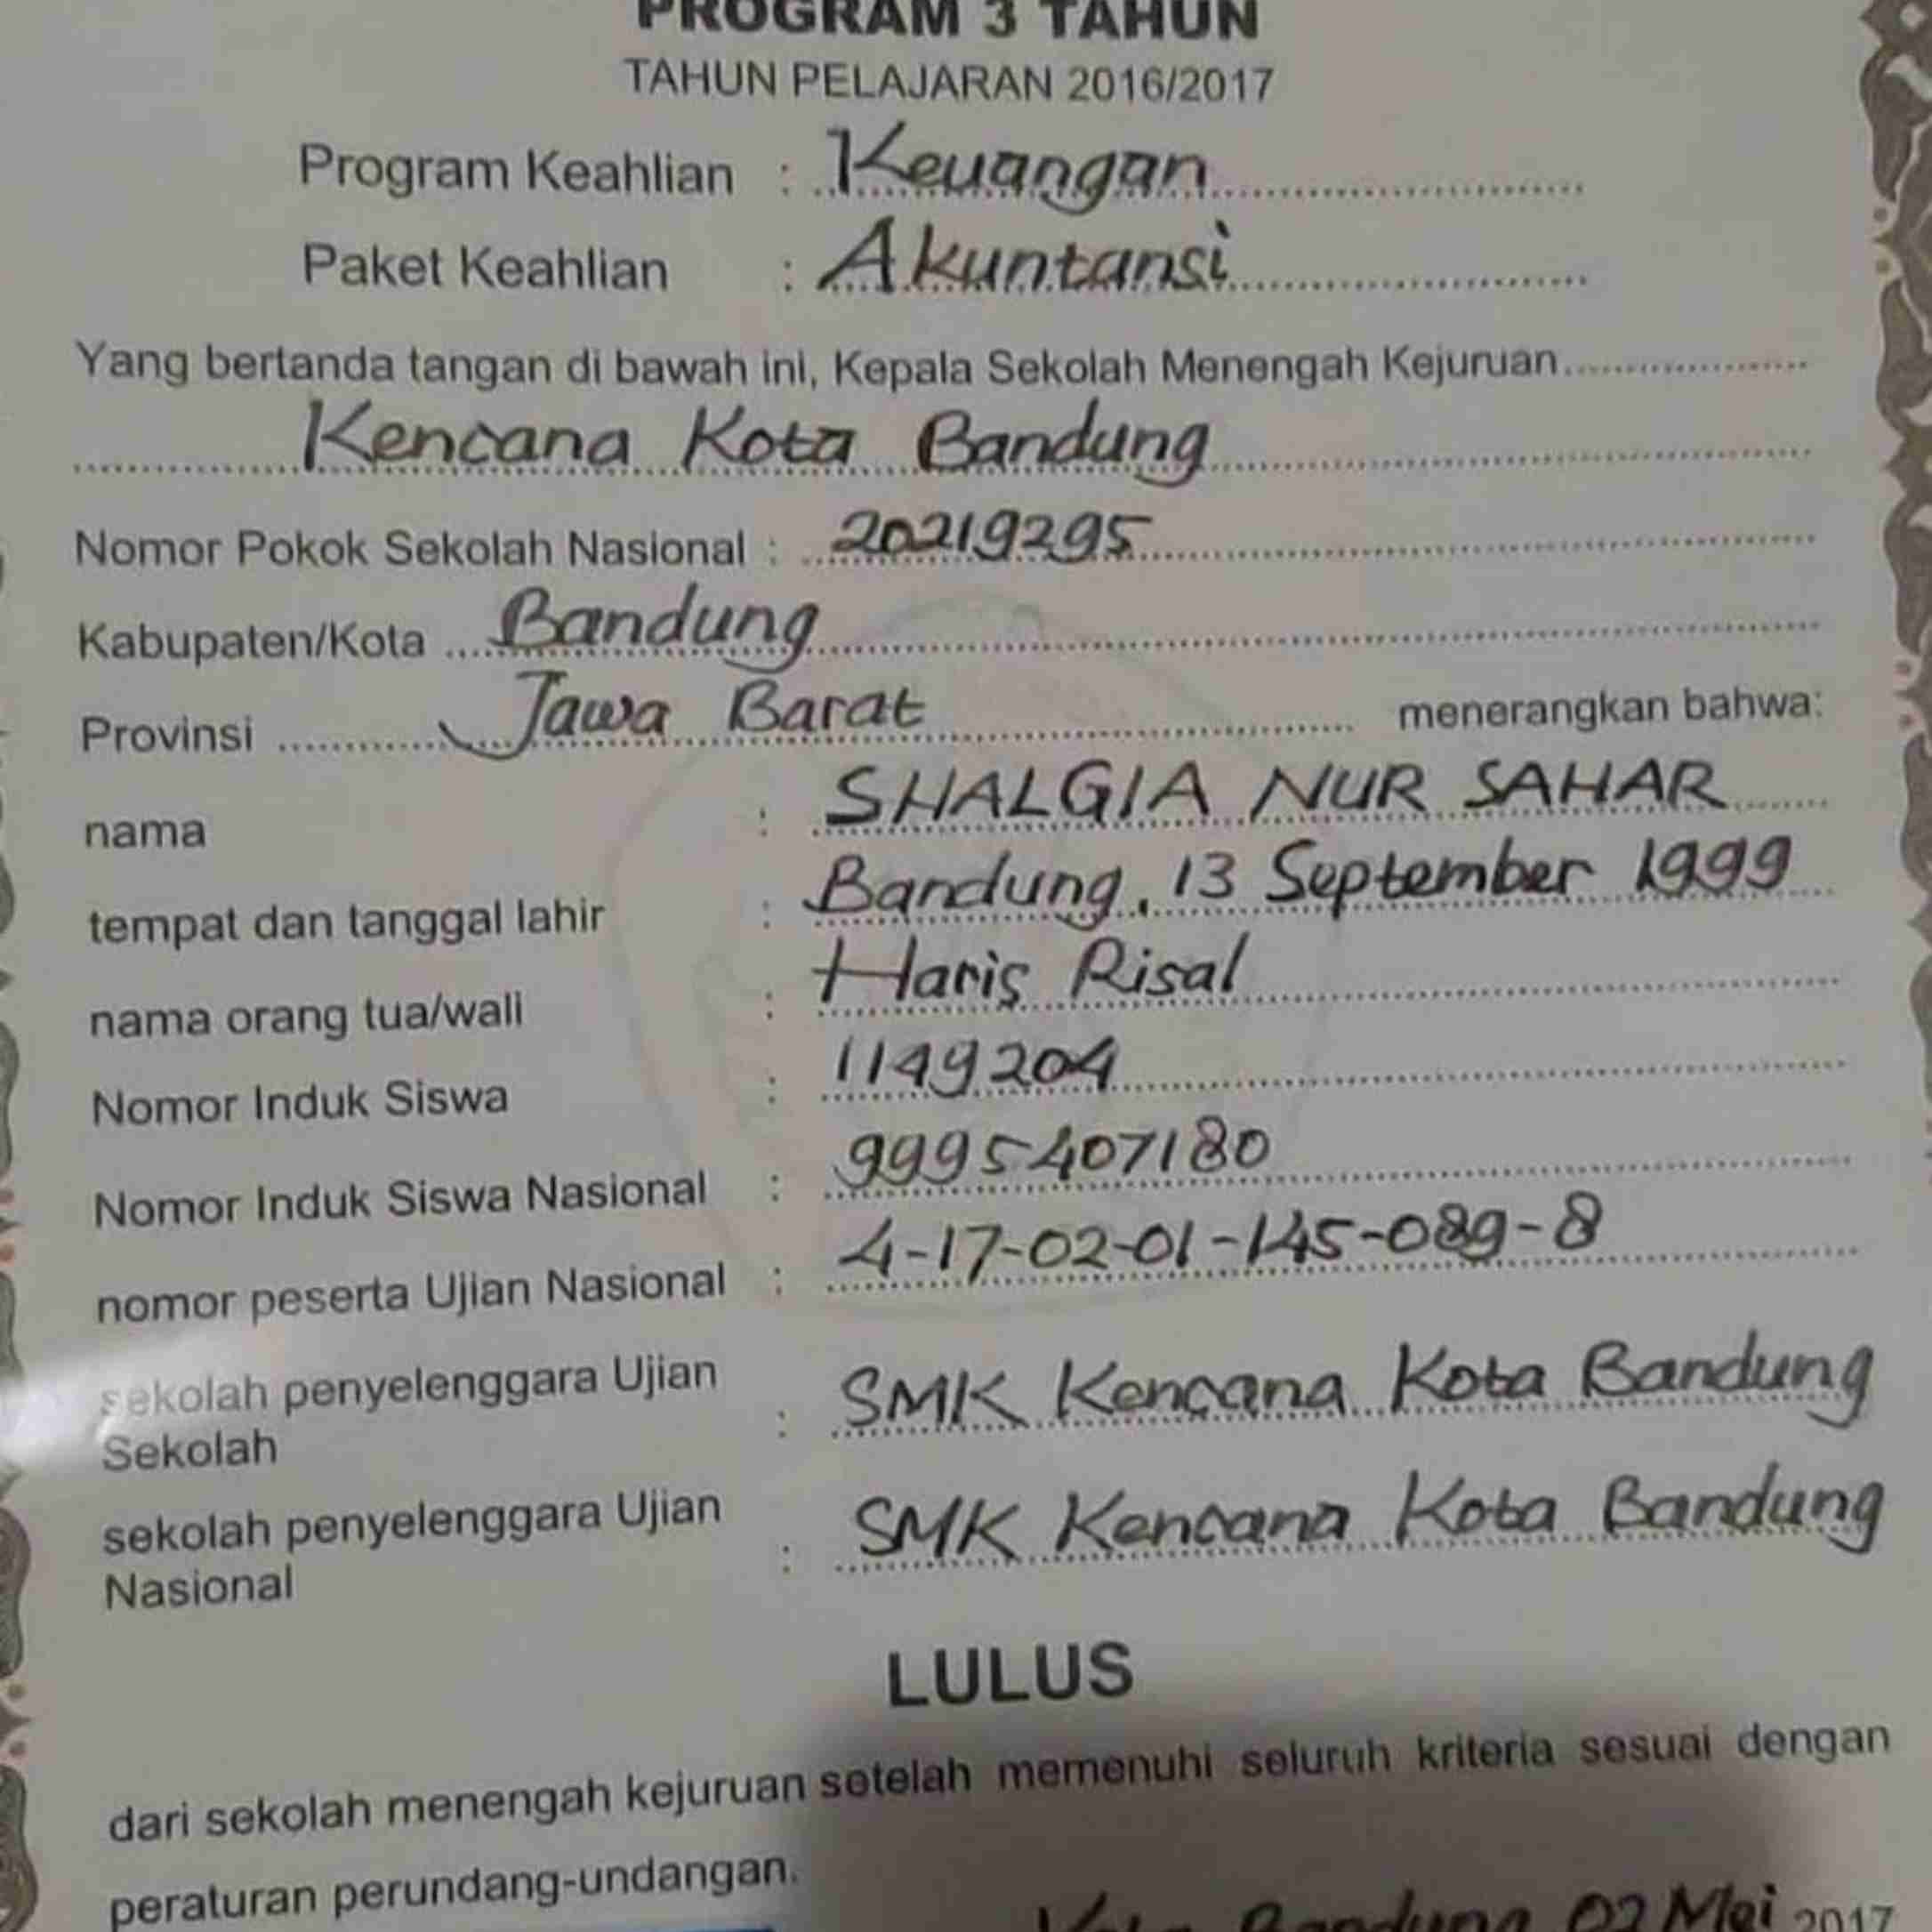 PROGRAM 3 TAHUN
TAHUN PELAJARAN 2016/2017
Program Keahlian : Keuangan
Paket Keahlian : Akuntansi
Yang bertanda tangan di bawah ini, Kepala Sekolah Menengah Kejuruan
Kencana Kota Bandung
Nomor Pokok Sekolah Nasional : 20219295
Kabupaten/Kota Bandung
Provinsi Jawa Barat menerangkan bahwa:
nama : SHALGIA NUR SAHAR
tempat dan tanggal lahir : Bandung, 13 September 1999
nama orang tua/wali : Haris Risal
Nomor Induk Siswa : 1149204
Nomor Induk Siswa Nasional : 9995407180
nomor peserta Ujian Nasional : 4-17-02-01-145-089-8
sekolah penyelenggara Ujian
Sekolah : SMK Kencana Kota Bandung
sekolah penyelenggara Ujian
Nasional : SMK Kencana Kota Bandung
LULUS
dari sekolah menengah kejuruan setelah memenuhi seluruh kriteria sesuai dengan
peraturan perundang-undangan.
Kota Bandung 02 Mei 2017